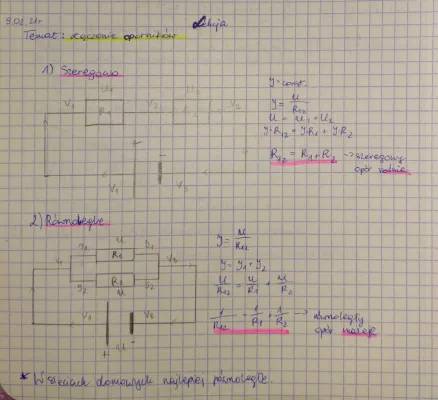 Lekcja
Temat: Łączenie oporników
1) Szeregowo
V1 R1 V2 V2
V1 V3
J = const.
J = U/R12
U = U1 + U2
J·R12 = J·R1 + J·R2
R12 = R1 + R2 → szeregowy
opór rośnie
2) Równoległe
J1 U J1
R1
R2
J2 U J2
+ U -
J = U/R12
J = J1 + J2
U/R12 = U/R1 + U/R2
1/R12 = 1/R1 + 1/R2 → równoległy
opór maleje
* W sieciach domowych najlepiej równoległe.